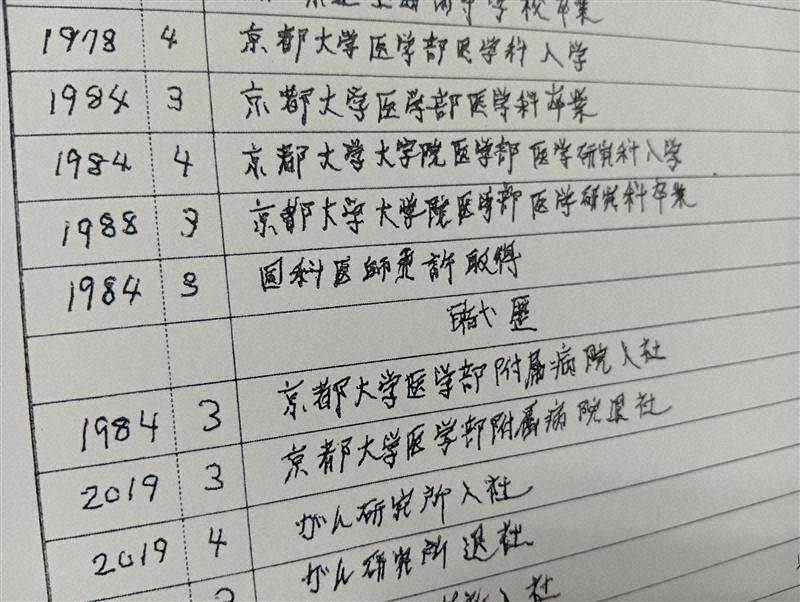 学校卒業
1978 4 京都大学医学部医学科入学
1984 3 京都大学医学部医学科卒業
1984 4 京都大学大学院医学部医学研究科入学
1988 3 京都大学大学院医学部医学研究科卒業
1984 3 科医師免許取得
職歴
1984 3 京都大学医学部附属病院入社
2019 3 京都大学医学部附属病院退社
2019 4 がん研究所入社
がん研究所退社
入社